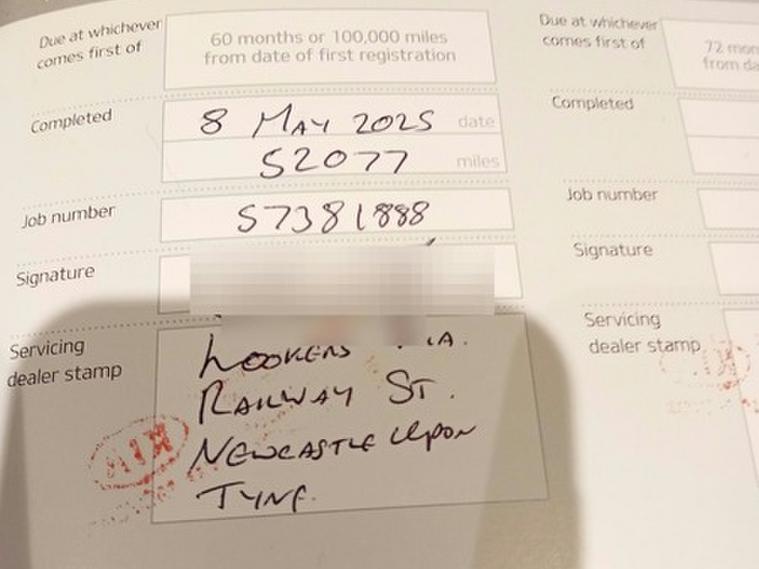 Due at whichever
comes first of
60 months or 100,000 miles
from date of first registration
Completed
8 MAY 2025 date
52077 miles
Job number
57381888
Signature
Servicing
dealer stamp
LOOKERS
RAILWAY ST.
NEWCASTLE UPON
TYNE.
Due at whichever
comes first of
72
from
Completed
Job number
Signature
Servicing
dealer stamp